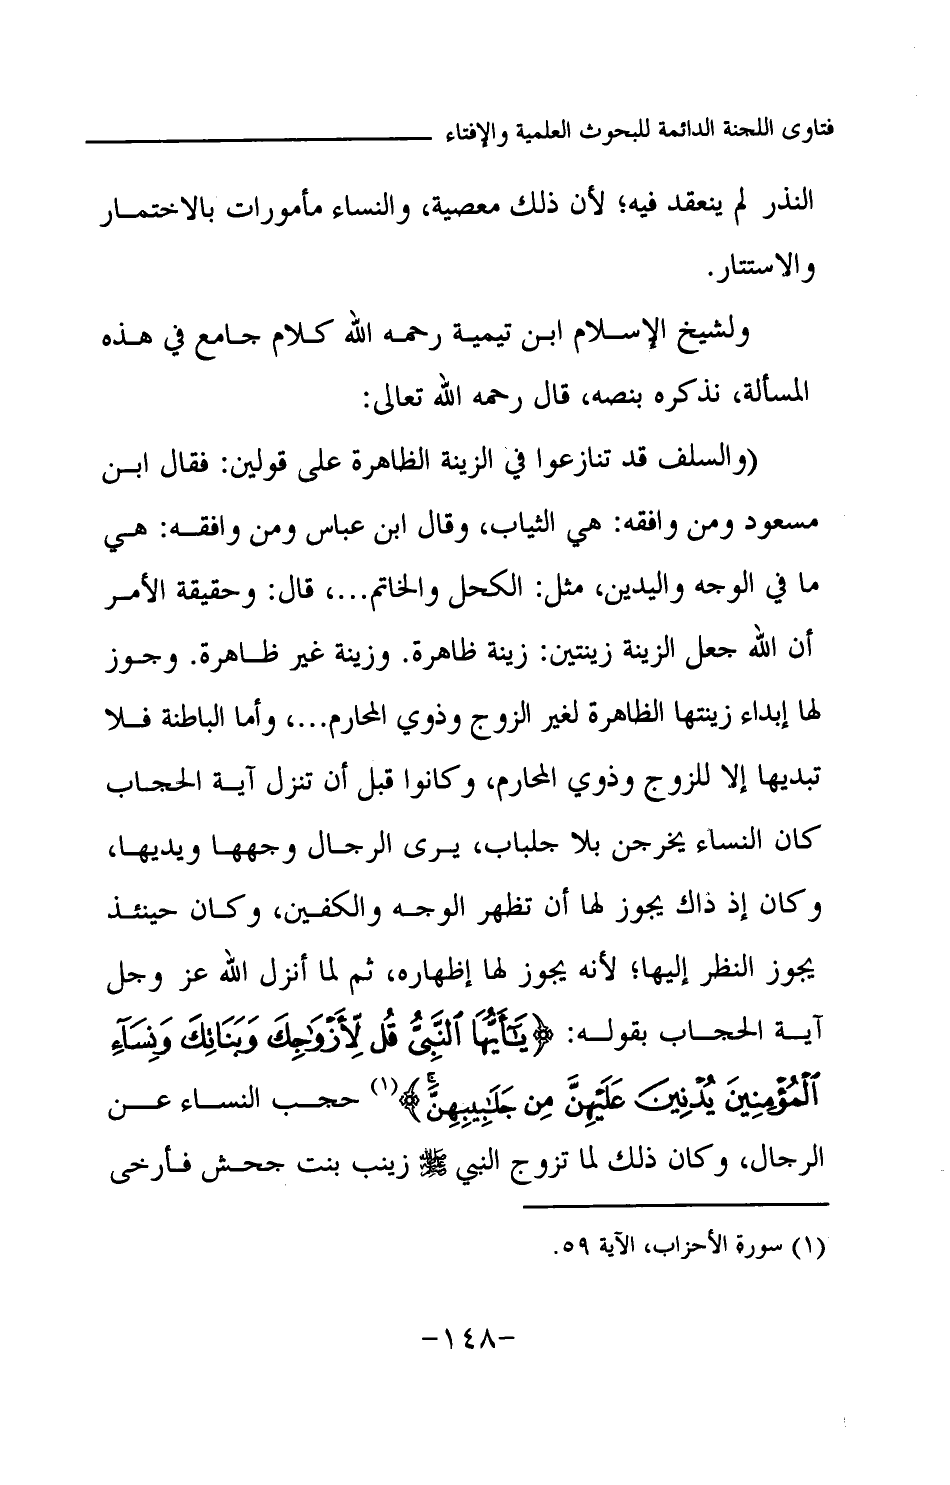 فتاوى اللجنة الدائمة للبحوث العلمية والإفتاء
النذر لم ينعقد فيه؛ لأن ذلك معصية، والنساء مأمورات بالاختمار
والاستتار.
ولشيخ الإسلام ابن تيمية رحمه الله كلام جامع في هذه
المسألة، نذكره بنصه، قال رحمه الله تعالى:
(والسلف قد تنازعوا في الزينة الظاهرة على قولين: فقال ابن
مسعود ومن وافقه: هي الثياب، وقال ابن عباس ومن وافقه: هي
ما في الوجه واليدين، مثل: الكحل والخاتم...، قال: وحقيقة الأمر
أن الله جعل الزينة زينتين: زينة ظاهرة. وزينة غير ظاهرة. وجوز
لها إبداء زينتها الظاهرة لغير الزوج وذوي المحارم...، وأما الباطنة فلا
تبديها إلا للزوج وذوي المحارم، وكانوا قبل أن تنزل آية الحجاب
كان النساء يخرجن بلا جلباب، يرى الرجال وجهها ويديها،
وكان إذ ذاك يجوز لها أن تظهر الوجه والكفين، وكان حينئذ
يجوز النظر إليها؛ لأنه يجوز لها إظهاره، ثم لما أنزل الله عز وجل
آية الحجاب بقوله: ﴿يَٰٓأَيُّهَا ٱلنَّبِىُّ قُل لِّأَزْوَٰجِكَ وَبَنَاتِكَ وَنِسَآءِ
ٱلْمُؤْمِنِينَ يُدْنِينَ عَلَيْهِنَّ مِن جَلَٰبِيبِهِنَّ ۚ﴾(١) حجب النساء عن
الرجال، وكان ذلك لما تزوج النبي ﷺ زينب بنت جحش فأرخى
(١) سورة الأحزاب، الآية ٥٩.
-١٤٨-